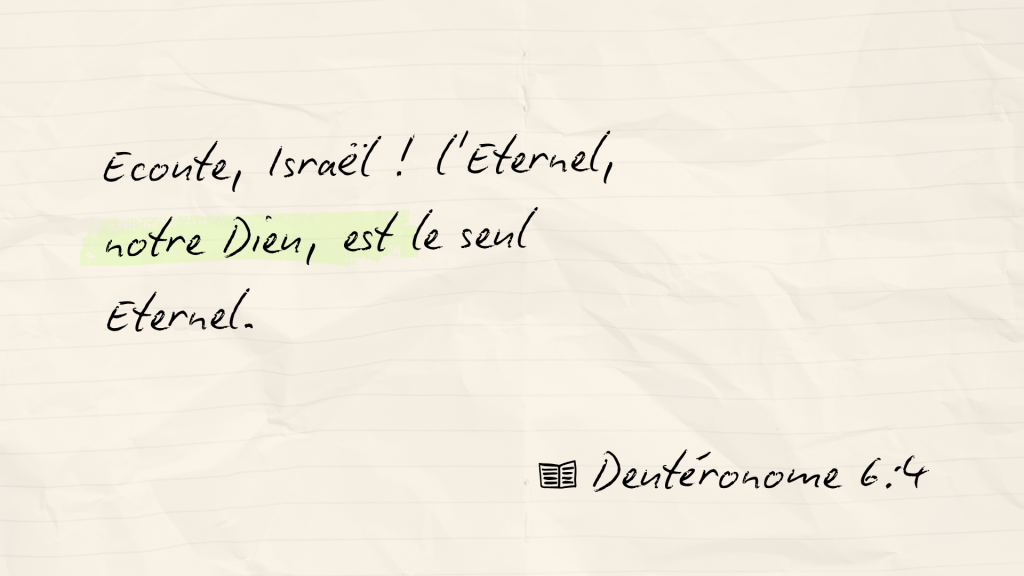 Ecoute, Israël ! l'Eternel,
notre Dieu, est le seul
Eternel.
Deutéronome 6:4